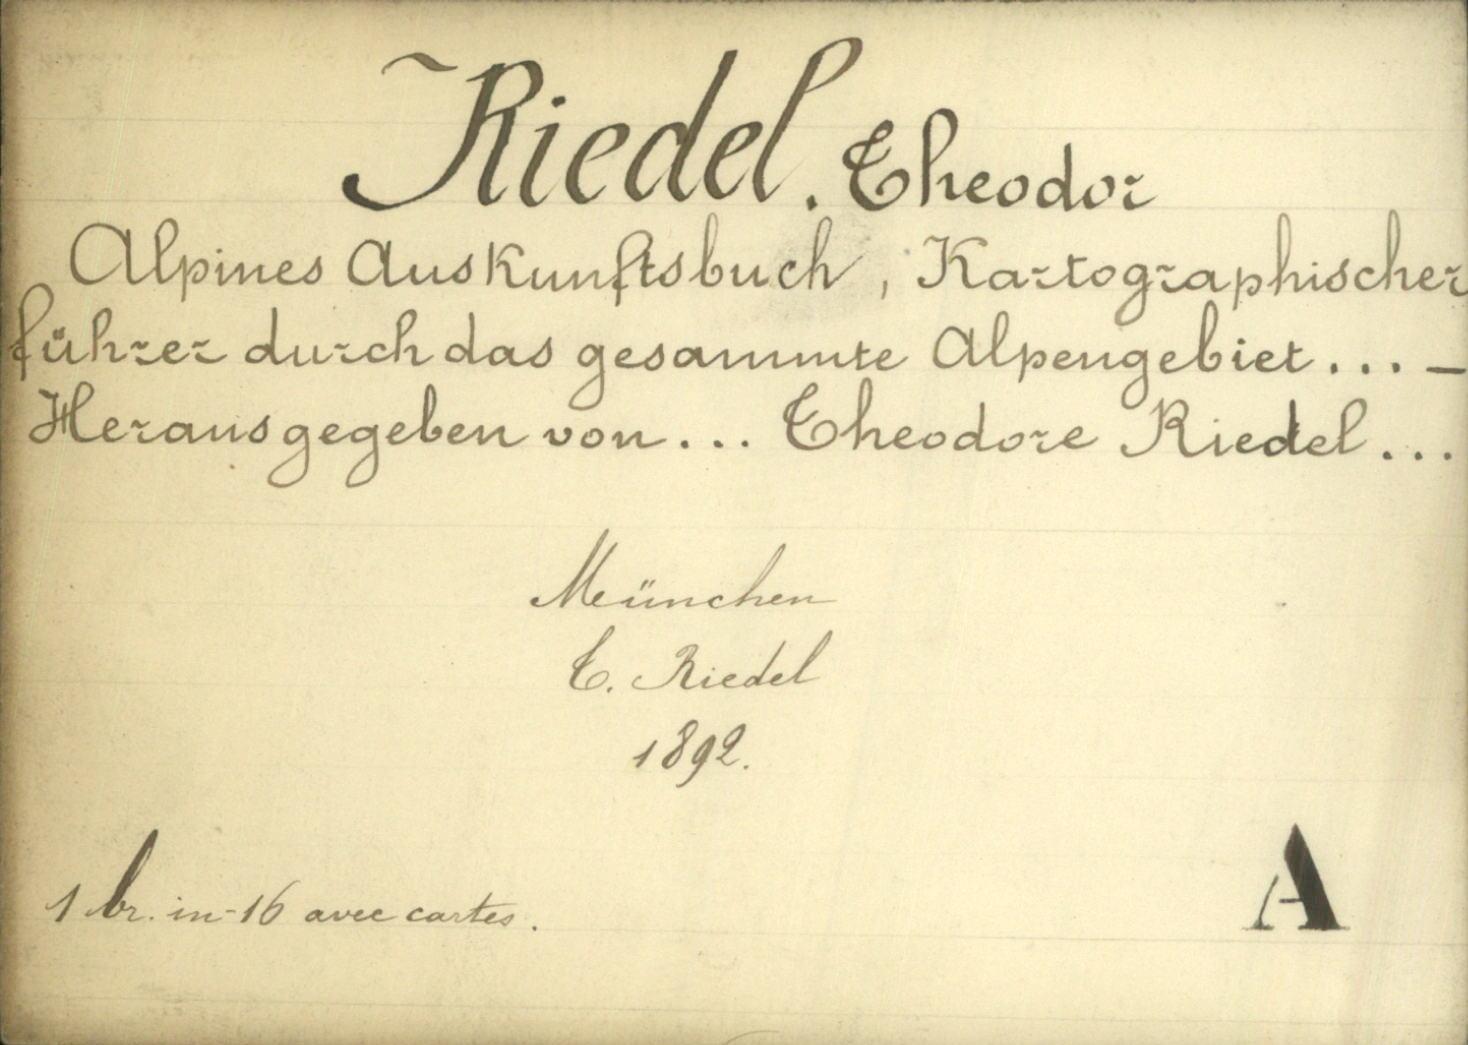 Riedel. Theodor
Alpines Auskunftsbuch, Kartographischer
führer durch das gesammte Alpengebiet... —
Herausgegeben von... Theodore Riedel...
Meünchen
T. Riedel
1892.
1 br. in-16 avec cartes.
A